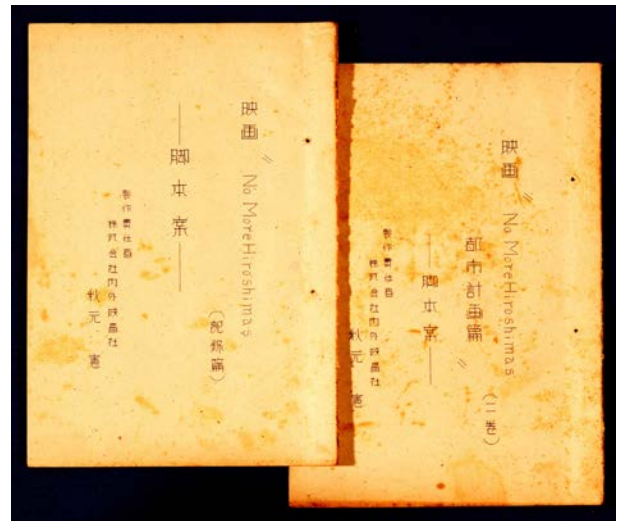 映画〝No More Hiroshimas
(記録篇)
――脚本案――
製作責任者
株式会社内外映画社
秋元 憲
映画〝No More Hiroshimas
都市計画篇〃
(二巻)
――脚本案――
製作責任者
株式会社内外映画社
秋元 憲